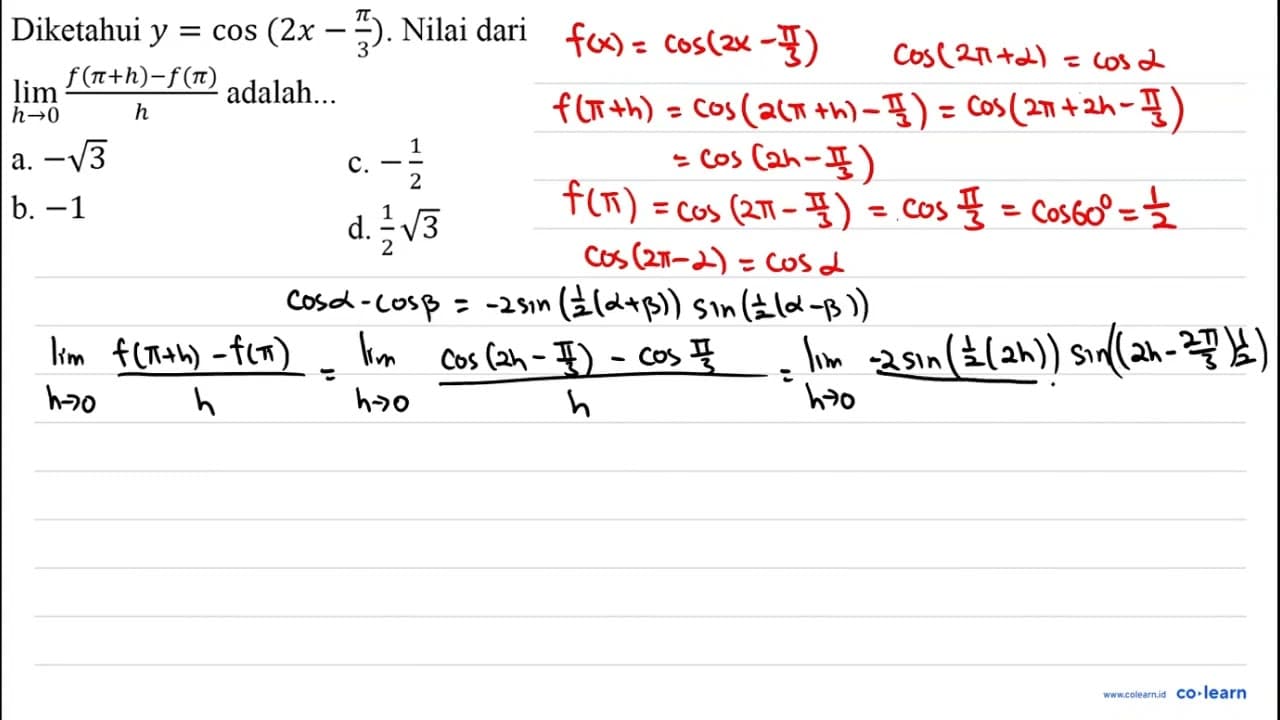 Diketahui y = cos (2x − π/3). Nilai dari
lim h→0 f(π+h)−f(π)/h adalah...
a. −√3
b. −1
c. −1/2
d. 1/2 √3
f(x) = cos(2x - π/3)
cos(2π+α) = cos α
f(π+h) = cos(2(π+h) - π/3) = cos(2π+2h - π/3)
= cos(2h - π/3)
f(π) = cos(2π - π/3) = cos π/3 = cos60° = 1/2
cos(2π-α) = cos α
cosα - cosβ = -2sin(1/2(α+β)) sin(1/2(α-β))
lim h→0 f(π+h) - f(π)/h = lim h→0 cos(2h - π/3) - cos π/3/h = lim h→0 -2sin(1/2(2h)) sin((2h - 2π/3)1/2)
www.colearn.id co·learn